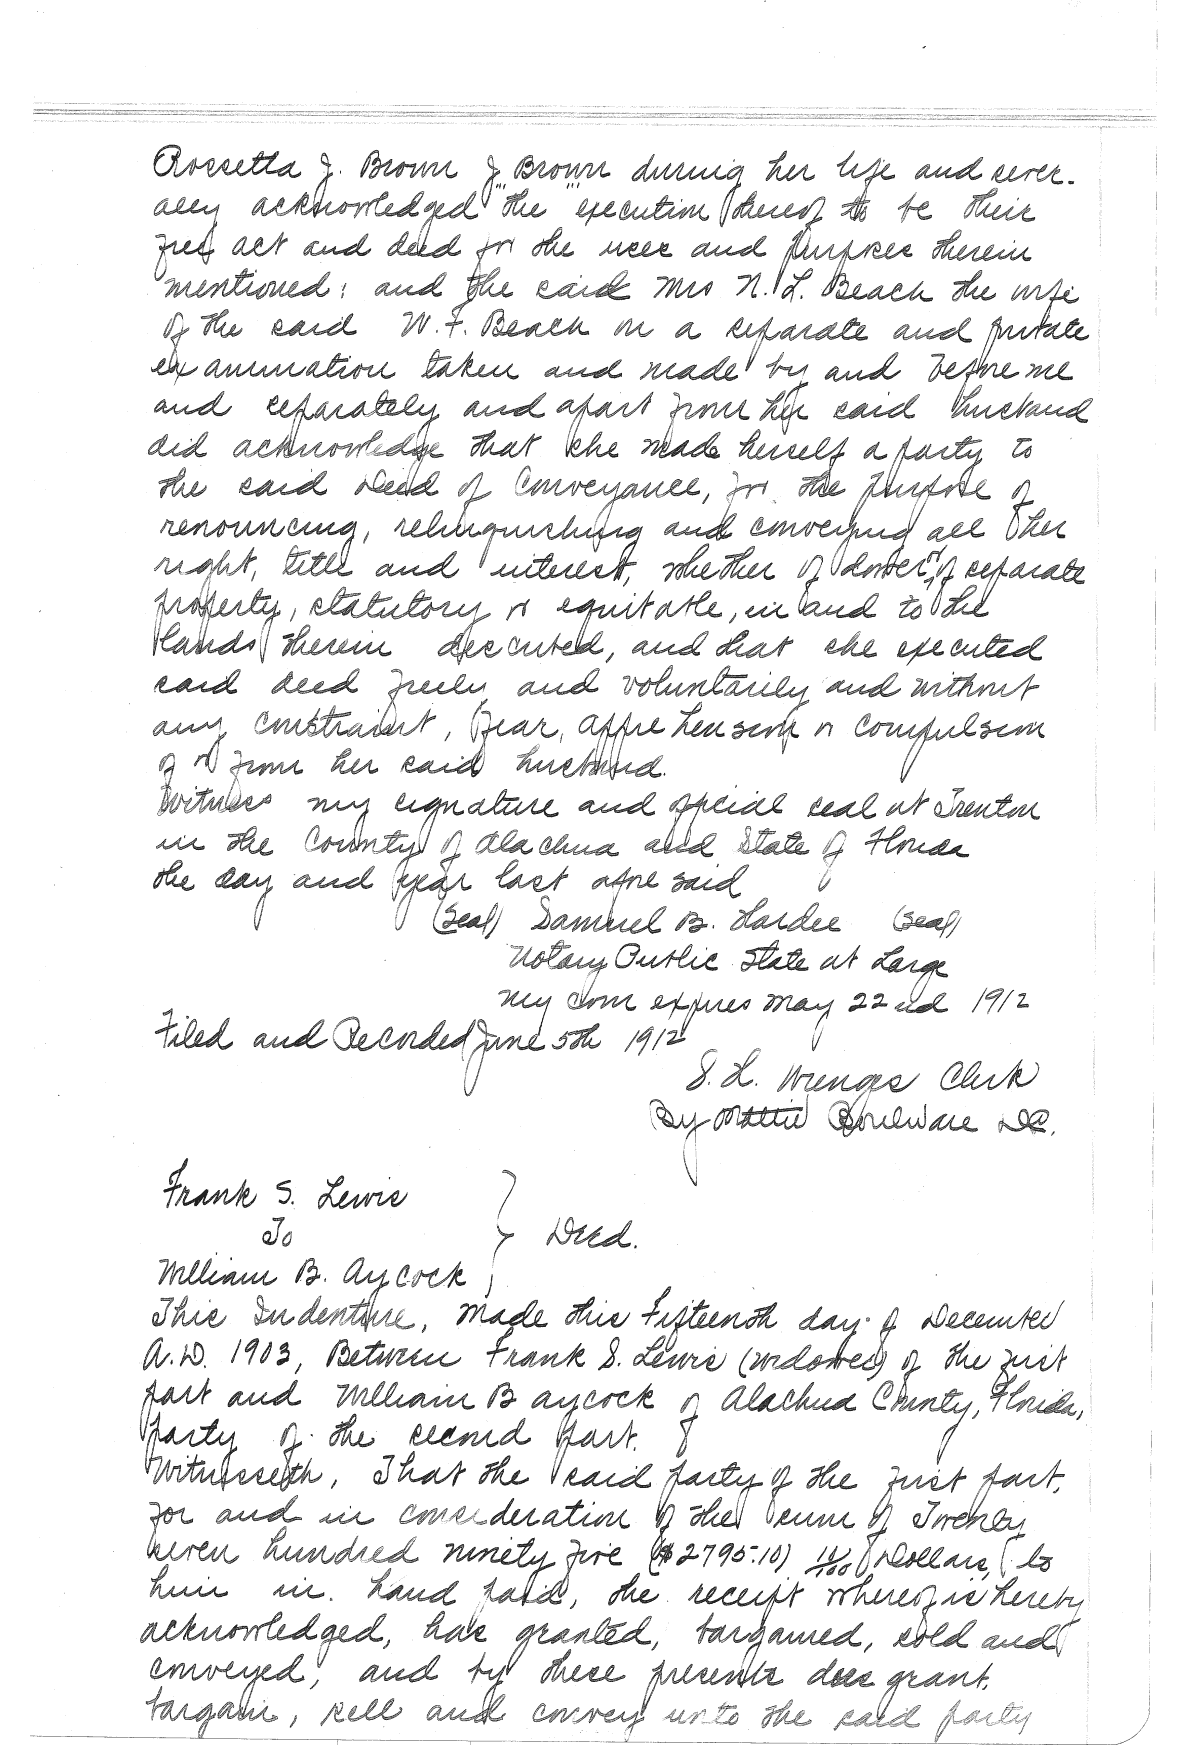 Rossetta J. Brown J "Brown" during her life and sever-
ally acknowledged the execution thereof to be their
free act and deed for the uses and purposes therein
mentioned; and the said Mrs N. L. Beach the wife
of the said W. F. Beach on a separate and private
examination taken and made by and before me
and separately and apart from her said husband
did acknowledge that she made herself a party to
the said Deed of Conveyance, for the purpose of
renouncing, relinquishing and conveying all her
right, title and interest, whether of dower or of separate
property, statutory or equitable, in and to the
lands therein described, and that she executed
said deed freely and voluntarily and without
any constraint, fear, apprehension or compulsion
of or from her said husband.
Witness my signature and official seal at Trenton
in the County of Alachua and State of Florida
the day and year last aforesaid
(Seal) Samuel B. Hardee (Seal)
Notary Public State at Large
my com expires May 22nd 1912
Filed and Recorded June 5th 1912
S. H. Wienges Clerk
By Mattie Boulware D.C.
Frank S. Lewis
To } Deed.
William B. Aycock
This Indenture, Made this Fifteenth day of December
A.D. 1903, Between Frank S. Lewis (widower) of the first
part and William B Aycock of Alachua County, Florida,
party of the second part.
Witnesseth, That the said party of the first part,
for and in consideration of the sum of Twenty
seven hundred ninety five ($2795.10) 10/100 Dollars, to
him in hand paid, the receipt whereof is hereby
acknowledged, has granted, bargained, sold and
conveyed, and by these presents does grant,
bargain, sell and convey unto the said party